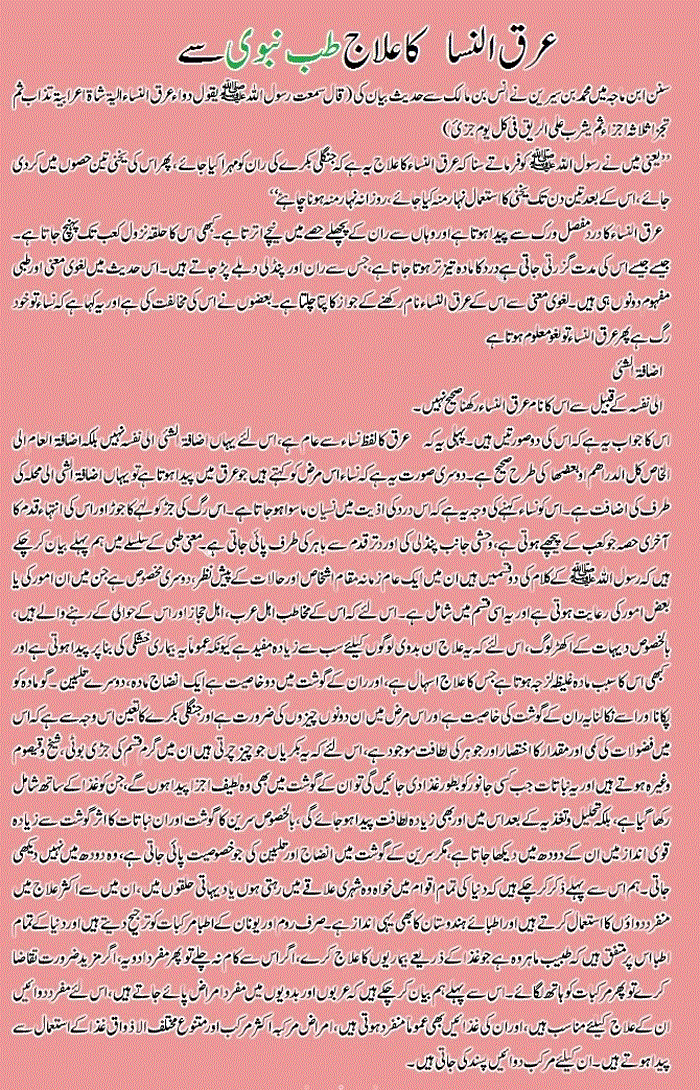 عرق النسا کا علاج طب نبوی سے
سنن ابن ماجہ میں محمد بن سیرین نے انس بن مالک سے حدیث بیان کی (قال سمعت رسول اللہ ﷺ یقول دواء عرق النساء الیۃ شاۃ اعرابیۃ تذاب ثم
تجزا ثلاثہ اجزا ثم یشرب علی الریق فی کل یوم جزئ)
’’یعنی میں نے رسول اللہ ﷺ کو فرماتے سنا کہ عرق النساء کا علاج یہ ہے کہ جنگلی بکرے کی ران کو مہرا کیا جائے، پھر اس کی یخنی تین حصوں میں کردی
جائے، اس کے بعد تین دن تک یخنی کا استعمال نہار منہ کیا جائے، روزانہ نہار منہ ہونا چاہئے‘‘
عرق النساء کا درد مفصل ورک سے پیدا ہوتا ہے اور وہاں سے ران کے پچھلے حصے میں نیچے اترتا ہے۔ کبھی اس کا حلقہ نزول کعب تک پہنچ جاتا ہے۔
جیسے جیسے اس کی مدت گزرتی جاتی ہے درد کا مادہ تیز تر ہوتا جاتا ہے، جس سے ران اور پنڈلی دبلے پڑ جاتے ہیں۔ اس حدیث میں لغوی معنی اور طبی
مفہوم دونوں ہی ہیں۔ لغوی معنی سے اس کے عرق النساء نام رکھنے کے جواز کا پتا چلتا ہے۔ بعضوں نے اس کی مخالفت کی ہے اور یہ کہا ہے کہ نساء تو خود
رگ ہے پھر عرق النساء تو لغو معلوم ہوتا ہے
اضافۃ الشئی
الی نفسہ کے قبیل سے اس کا نام عرق النساء رکھنا صحیح نہیں۔
اس کا جواب یہ ہے کہ اس کی دو صورتیں ہیں۔ پہلی یہ کہ عرق کا لفظ نساء سے عام ہے، اس لئے یہاں اضافۃ الشئی الی نفسہ نہیں بلکہ اضافۃ العام الی
الخاص کل الدراھم اوبعضھا کی طرح صحیح ہے۔ دوسری صورت یہ ہے کہ نساء اس مرض کو کہتے ہیں جو عرق میں پیدا ہوتا ہے تو یہاں اضافۃ الشئی الی محلہ کی
طرف کی اضافت ہے۔ اس کو نساء کہنے کی وجہ یہ ہے کہ اس درد کی اذیت میں نسیان ماسوا ہوجاتا ہے۔ اس رگ کی جڑ کولہے کا جوڑ اور اس کی انتہاء قدم کا
آخری حصہ جو کعب کے پیچھے ہوتی ہے، وحشی جانب پنڈلی کی اور وتر قدم سے باہر کی طرف پائی جاتی ہے۔ معنی طبی کے سلسلے میں ہم پہلے بیان کرچکے
ہیں کہ رسول اللہ ﷺ کے کلام کی دو قسمیں ہیں ان میں ایک عام زمانہ مقام اشخاص اور حالات کے پیش نظر، دوسری مخصوص ہے جن میں ان امور کی یا
بعض امور کی رعایت ہوتی ہے اور یہ اسی قسم میں شامل ہے۔ اس لئے کہ اس کے مخاطب اہل عرب، اہل حجاز اور اس کے حوالی کے رہنے والے ہیں،
بالخصوص دیہات کے اکھڑ لوگ، اس لئے کہ یہ علاج ان بدوی لوگوں کیلئے سب سے زیادہ مفید ہے کیونکہ عموماً یہ بیماری خشکی کی بنا پر پیدا ہوتی ہے اور
کبھی اس کا سبب مادہ غلیظ لزجہ ہوتا ہے جس کا علاج اسہال ہے، اور ران کے گوشت میں دو خاصیت ہے ایک انضاج مادہ، دوسرے تلیین۔ گو مادہ کو
پکانا اور اسے نکالنا یہ ران کے گوشت کی خاصیت ہے اور اس مرض میں ان دونوں چیزوں کی ضرورت ہے اور جنگلی بکرے کا تعین اس وجہ سے ہے کہ اس
میں فضولات کی کمی اور مقدار کا اختصار اور جوہر کی لطافت موجود ہے، اس لئے کہ یہ بکریاں جو چیز چرتی ہیں ان میں گرم قسم کی جڑی بوٹی، شیخ و قیصوم
وغیرہ ہوتے ہیں اور یہ نباتات جب کسی جانور کو بطور غذا دی جائیں گی تو ان کے گوشت میں بھی وہ لطیف اجزا پیدا ہوں گے، جن کو غذا کے ساتھ شامل
رکھا گیا ہے، بلکہ تحلیل و تغذیہ کے بعد اس میں اور بھی زیادہ لطافت پیدا ہوجائے گی، بالخصوص سرین کا گوشت اور ان نباتات کا اثر گوشت سے زیادہ
قوی انداز میں ان کے دودھ میں دیکھا جاتا ہے، مگر سرین کے گوشت میں انضاج اور تلیین کی جو خصوصیت پائی جاتی ہے، وہ دودھ میں نہیں دیکھی
جاتی۔ ہم اس سے پہلے ذکر کرچکے ہیں کہ دنیا کی تمام اقوام میں خواہ وہ شہری علاقے میں رہتی ہوں یا دیہاتی حلقوں میں، ان میں سے اکثر علاج میں
منفرد دواؤں کا استعمال کرتے ہیں اور اطبائے ہندوستان کا بھی یہی انداز ہے۔ صرف روم اور یونان کے اطبا مرکبات کو ترجیح دیتے ہیں اور دنیا کے تمام
اطبا اس پر متفق ہیں کہ طبیب ماہر وہ ہے جو غذا کے ذریعے بیماریوں کا علاج کرے، اگر اس سے کام نہ چلے تو پھر مفرد ادویہ، اگر مزید ضرورت تقاضا
کرے تو پھر مرکبات کو ہاتھ لگائے۔ اس سے پہلے ہم بیان کرچکے ہیں کہ عربوں اور بدویوں میں مفرد امراض پائے جاتے ہیں، اس لئے مفرد دوائیں
ان کے علاج کیلئے مناسب ہیں، اور ان کی غذائیں بھی عموماً منفرد ہوتی ہیں، امراض مرکبہ اکثر مرکب اور متنوع مختلف الاذواق غذا کے استعمال سے
پیدا ہوتے ہیں۔ ان کیلئے مرکب دوائیں پسند کی جاتی ہیں۔